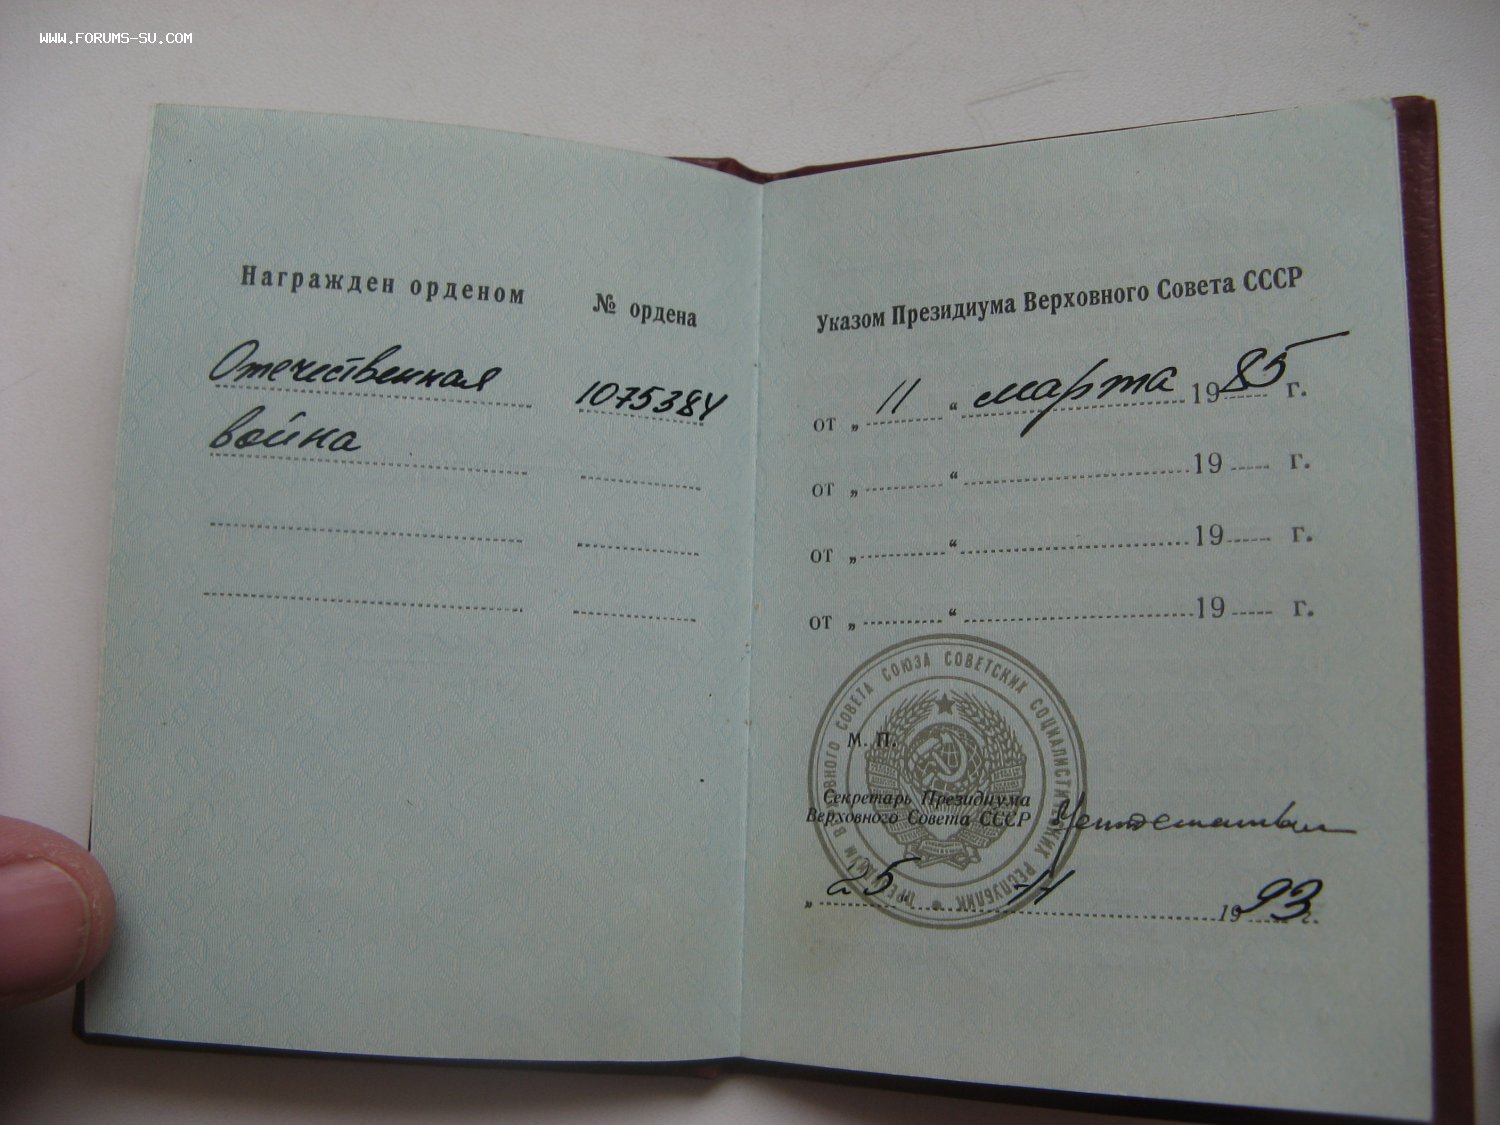 WWW.FORUMS-SU.COM
Награжден орденом
№ ордена
Отечественная
1075384
война
Указом Президиума Верховного Совета СССР
от „ 11 “ марта 1985 г.
от „ “ 19 г.
от „ “ 19 г.
от „ “ 19 г.
ПРЕЗИДИУМ ВЕРХОВНОГО СОВЕТА СОЮЗА СОВЕТСКИХ СОЦИАЛИСТИЧЕСКИХ РЕСПУБЛИК
М. П.
Секретарь Президиума
Верховного Совета СССР
„ 25 11 1993 г.